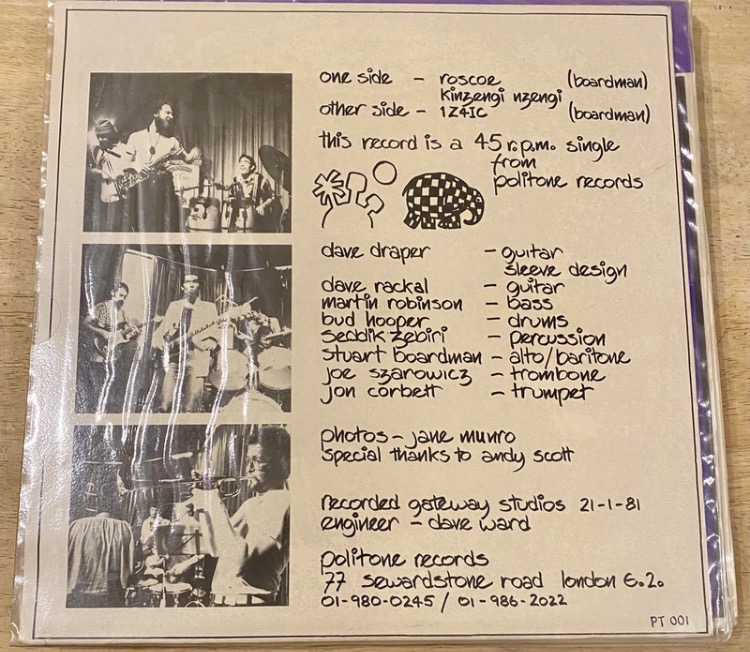 one side - roscoe (boardman)
kinzengi nzengi
other side - 1Z4IC (boardman)
this record is a 45 r.p.m. single
from
politone records
dave draper - guitar
sleeve design
dave rackal - guitar
martin robinson - bass
bud hooper - drums
seddik zebiri - percussion
stuart boardman - alto/baritone
joe szarowicz - trombone
jon corbett - trumpet
photos - jane munro
special thanks to andy scott
recorded gateway studios 21-1-81
engineer - dave ward
politone records
77 sewardstone road london E.2.
01-980-0245 / 01-986-2022
PT 001